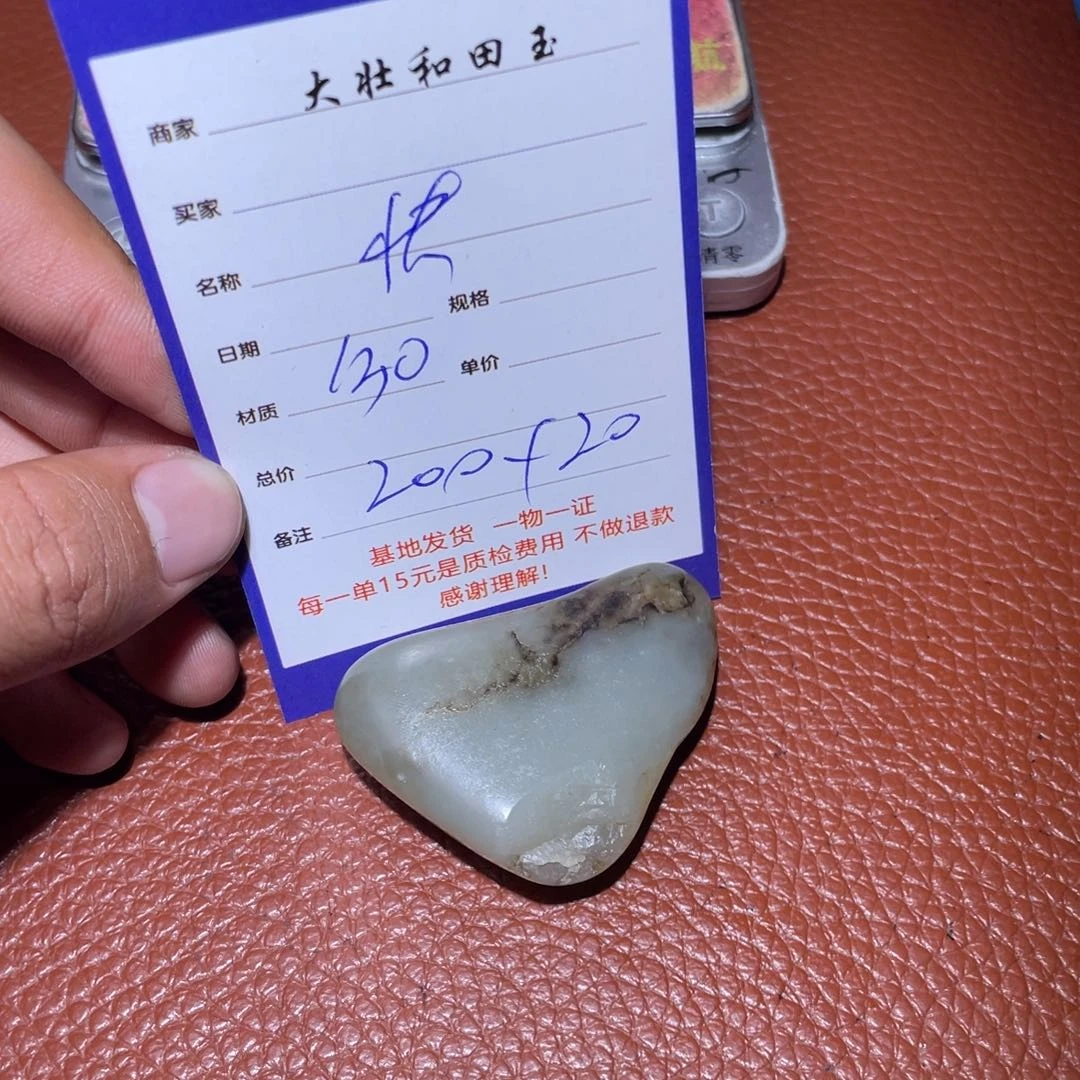 商家 大壮和田玉
买家
名称
日期 规格
材质 130 单价
总价 200+20
备注
基地发货 一物一证
每一单15元是质检费用 不做退款
感谢理解!
T
清零